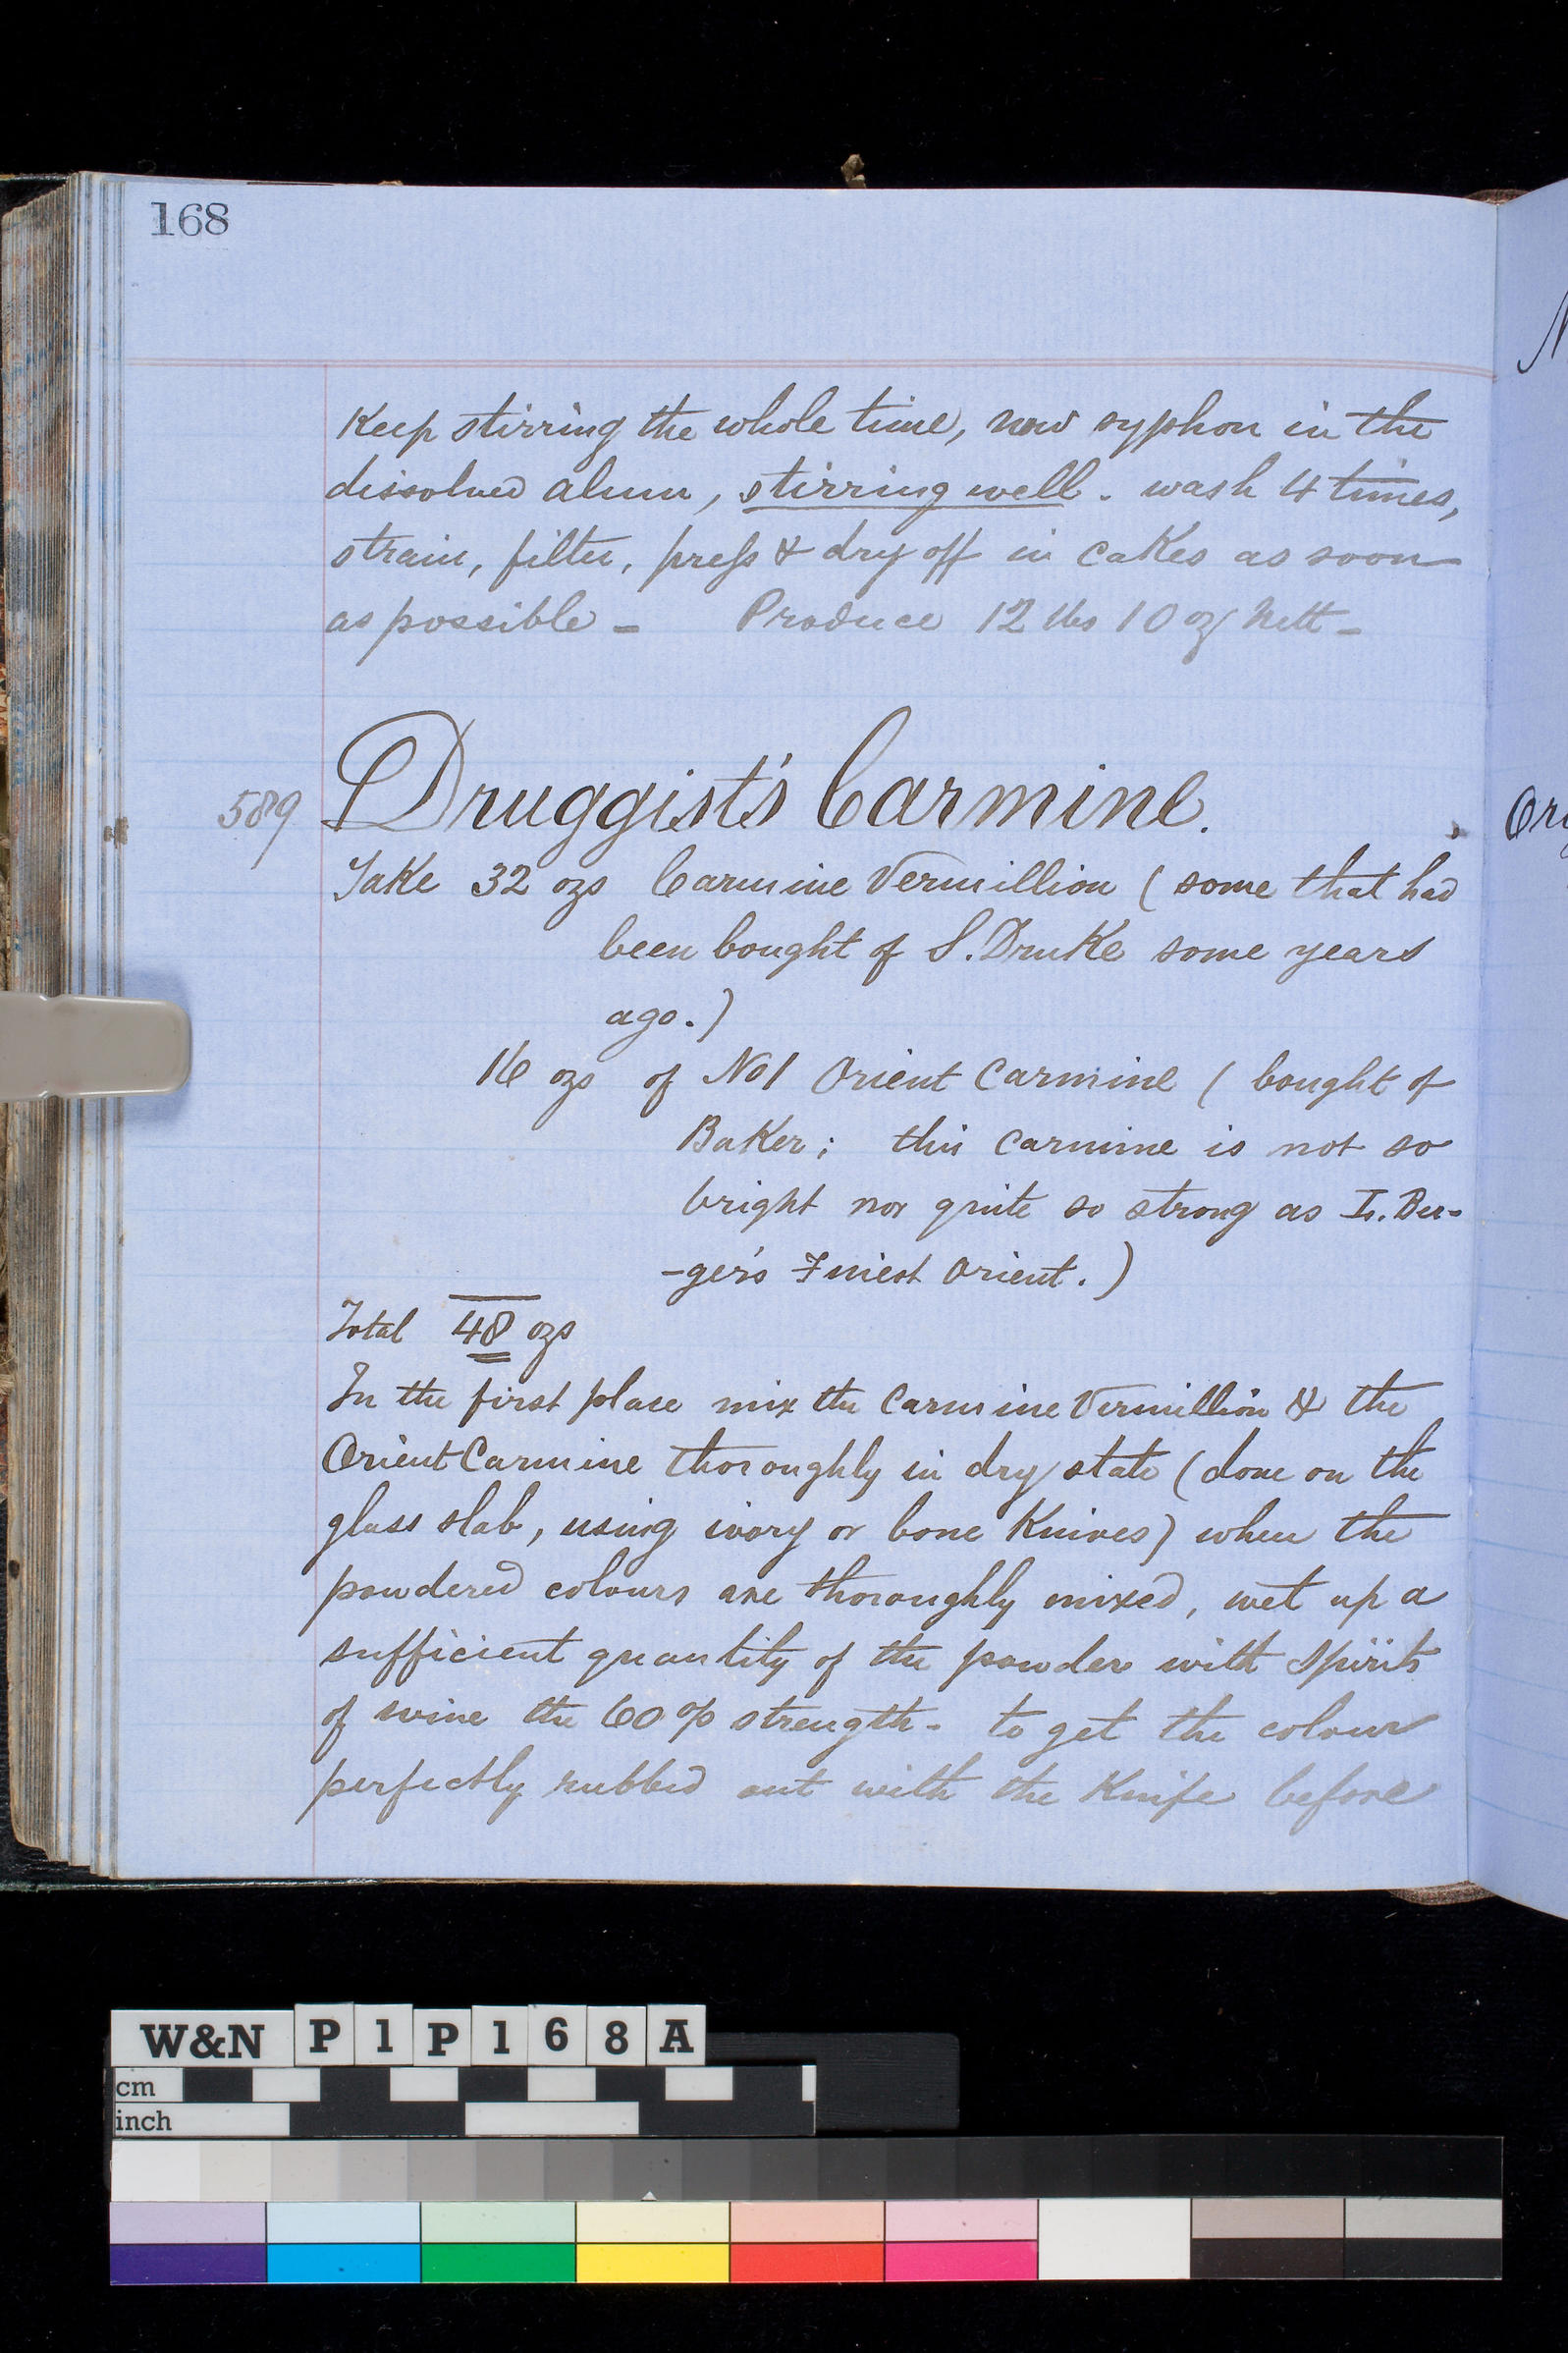 168
Keep stirring the whole time, now syphon in the
dissolved alum, stirring well. wash 4 times,
strain, filter, press & dry off in cakes as soon
as possible – Produce 12 lbs 10 oz Nett –
589 Druggist's Carmine.
Take 32 ozs Carmine Vermillion (some that had
been bought of S. Druke some years
ago.)
16 ozs of No1 Orient Carmine (bought of
Baker; this Carmine is not so
bright nor quite so strong as L. Ber-
-ger's Finest Orient.)
Total 48 ozs
In the first place mix the Carmine Vermillion & the
Orient Carmine thoroughly in dry state (done on the
glass slab, using ivory or bone Knives) when the
powdered colours are thoroughly mixed, wet up a
sufficient quantity of the powder with spirits
of wine the 60 % strength – to get the colour
perfectly rubbed out with the Knife before
Ori
W&N P1P168A
cm
inch